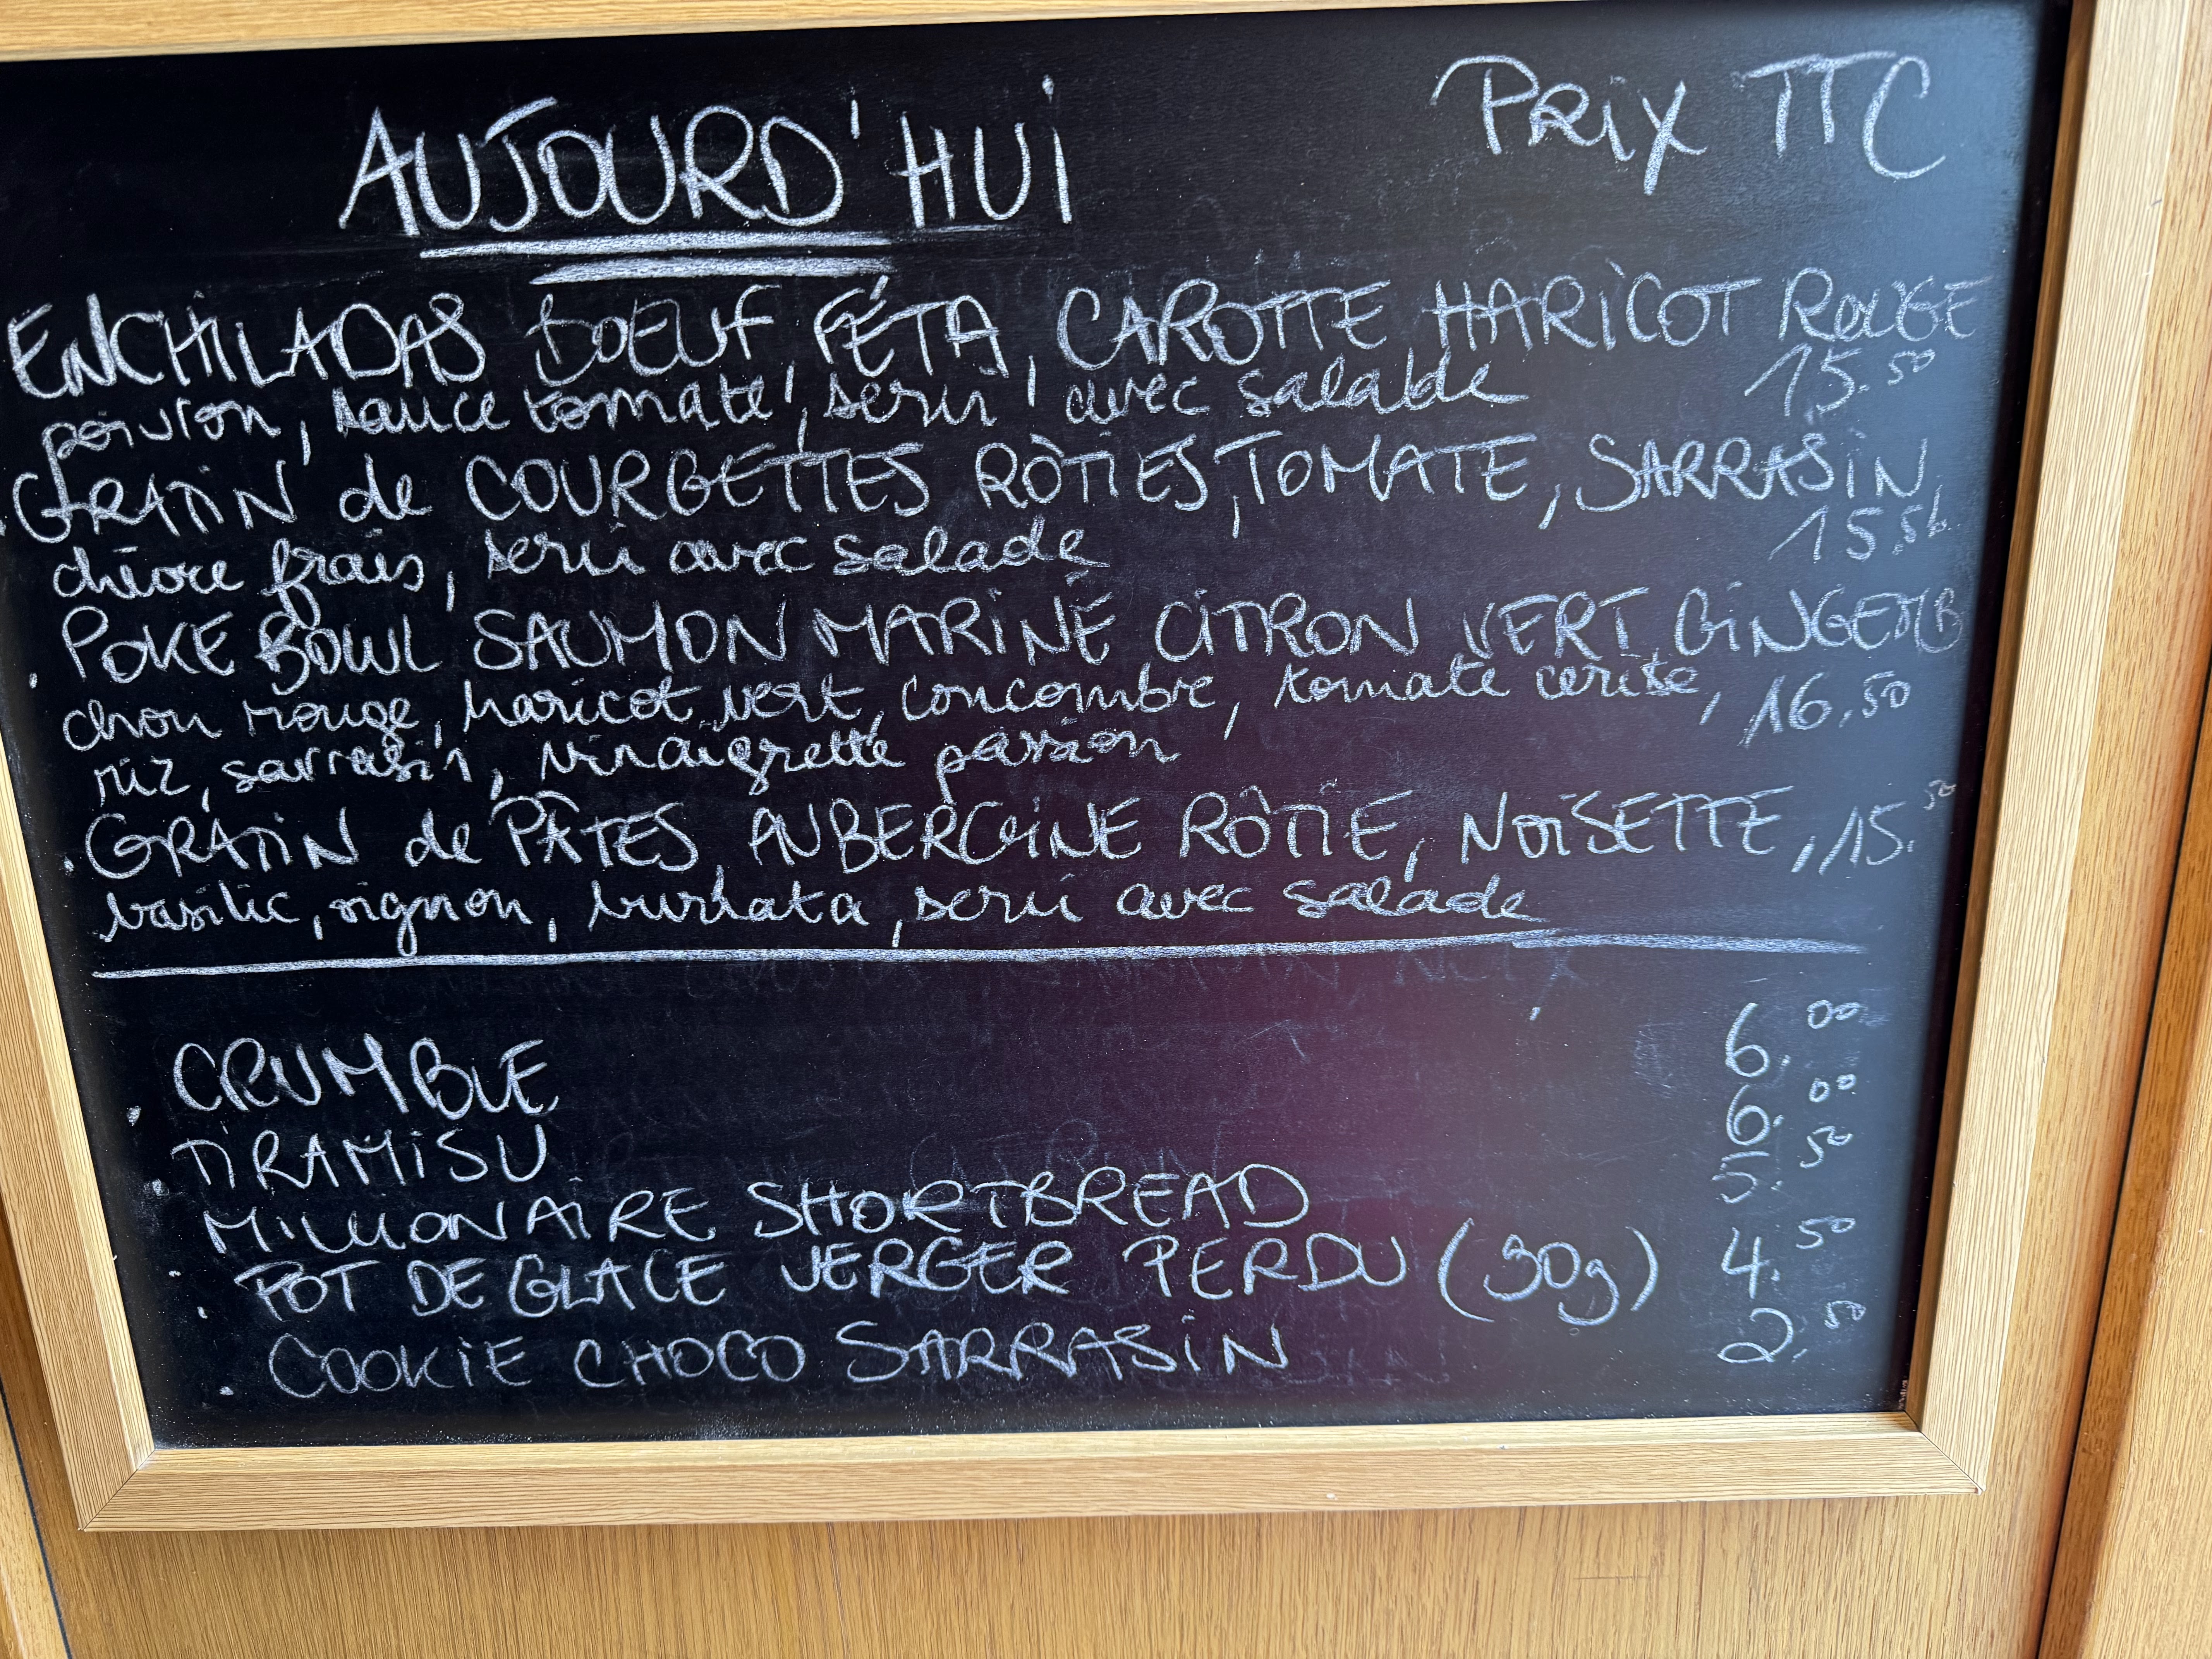 AUJOURD'HUI
PRIX TTC
ENCHILADAS BOEUF FÉTA, CAROTTE HARICOT ROUGE
poivron, sauce tomate, servi avec salade 15.50
. GRATIN de COURGETTES RÔTIES, TOMATE, SARRASIN,
chèvre frais, servi avec salade 15.50
. POKE BOWL SAUMON MARINÉ CITRON VERT GINGEMB
chou rouge, haricot vert, concombre, tomate cerise, 16.50
riz, sarrasin, vinaigrette passion
. GRATIN de PÂTES, AUBERGINE RÔTIE, NOISETTE, 15.50
basilic, oignon, burrata, servi avec salade
. CRUMBLE 6.00
. TIRAMISU 6.00
. MILLIONAIRE SHORTBREAD 5.50
. POT DE GLACE VERGER PERDU (90g) 4.50
. COOKIE CHOCO SARRASIN 2.50